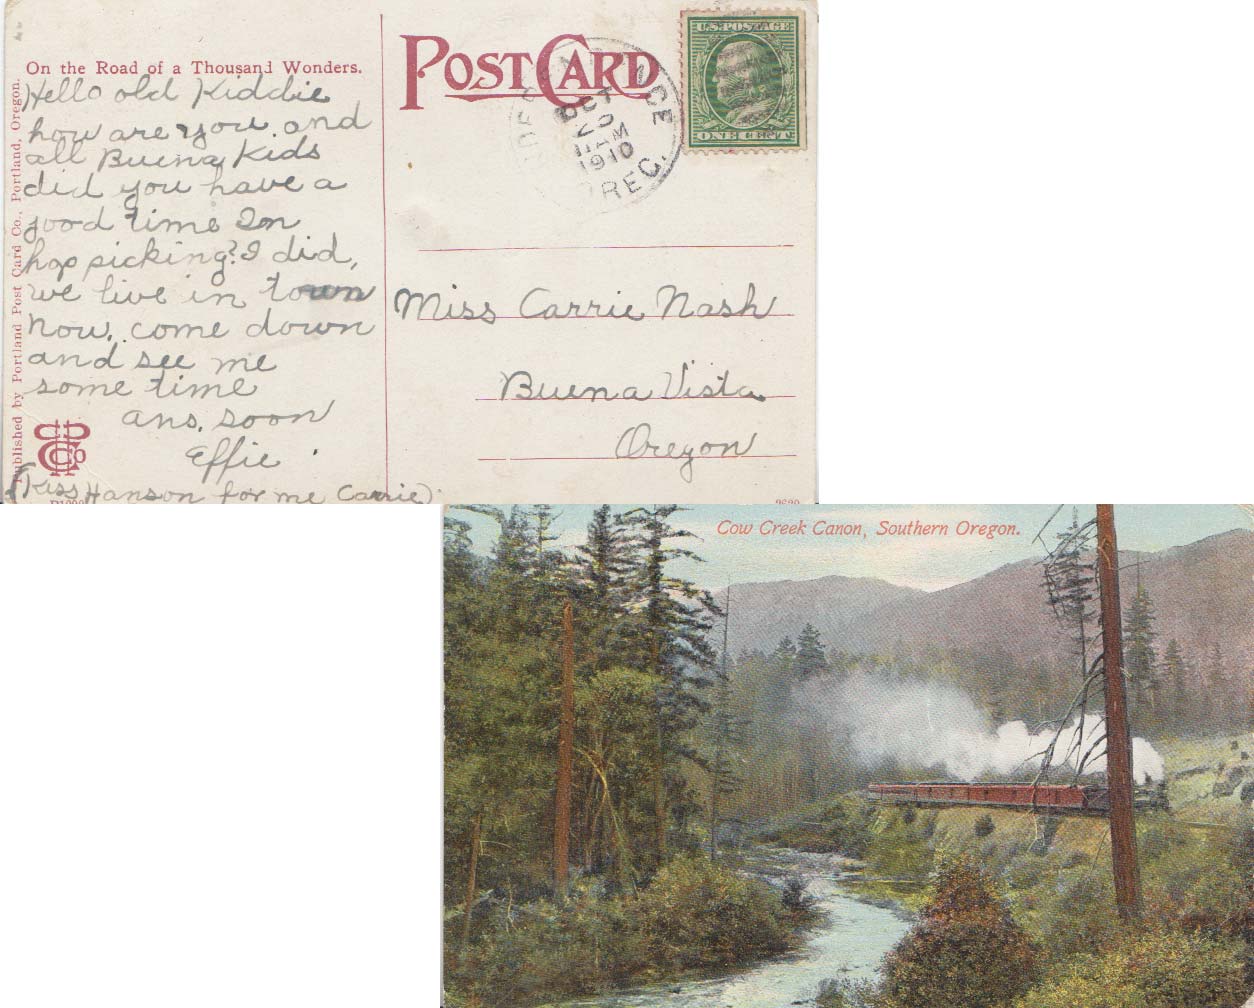 On the Road of a Thousand Wonders.
Hello old Kiddie
how are you. and
all Buena Kids
did you have a
good time In
hop picking? I did,
we live in town
now. come down
and see me
some time
ans. soon
Effie.
(Kiss Hanson for me Carrie).
Published by Portland Post Card Co., Portland, Oregon.
POST CARD
INDEPENDENCE
OCT
10
AM
1910
OREG.
U.S. POSTAGE
ONE CENT
Miss Carrie Nash
Buena Vista
Oregon
Cow Creek Canon, Southern Oregon.